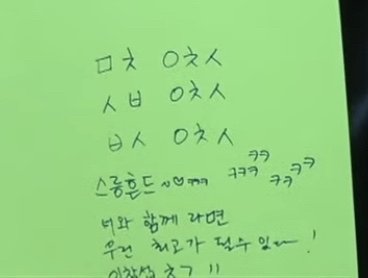 ㅁㅊ ㅇㅊㅅ
ㅅㅂ ㅇㅊㅅ
ㅂㅅ ㅇㅊㅅ
스릉흔드 ~♡ㅋㅋㅋ ㅋㅋㅋ ㅋㅋ ㅋㅋ ㅋㅋ
너와 함께 라면
우린 최고가 될수 있ㅡ!
이창섭 ㅊㄱ !!